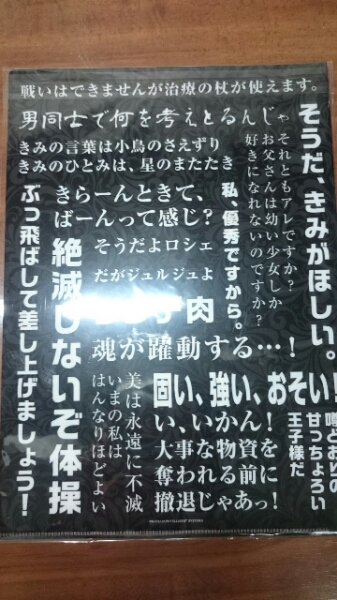 戦いはできませんが治療の杖が使えます。
男同士で何を考えとるんじゃ
きみの言葉は小鳥のさえずり
きみのひとみは、星のまたたき
そうだ、きみがほしい。
それともアレですか?
お父さんは幼い少女しか
好きになれないのですか?
私、優秀ですから。
きらーんときて、
ばーんって感じ?
そうだよロシェ
だがジュルジュよ
肉
魂が躍動する…!
絶滅しないぞ体操
ぶっ飛ばして差し上げましょう!
固い、強い、おそい!
美は永遠に不滅
いまの私は
はんなりほどよい
い、いかん!
大事な物資を
奪われる前に
撤退じゃあっ!
噂どおりの
甘っちょろい
王子様だ